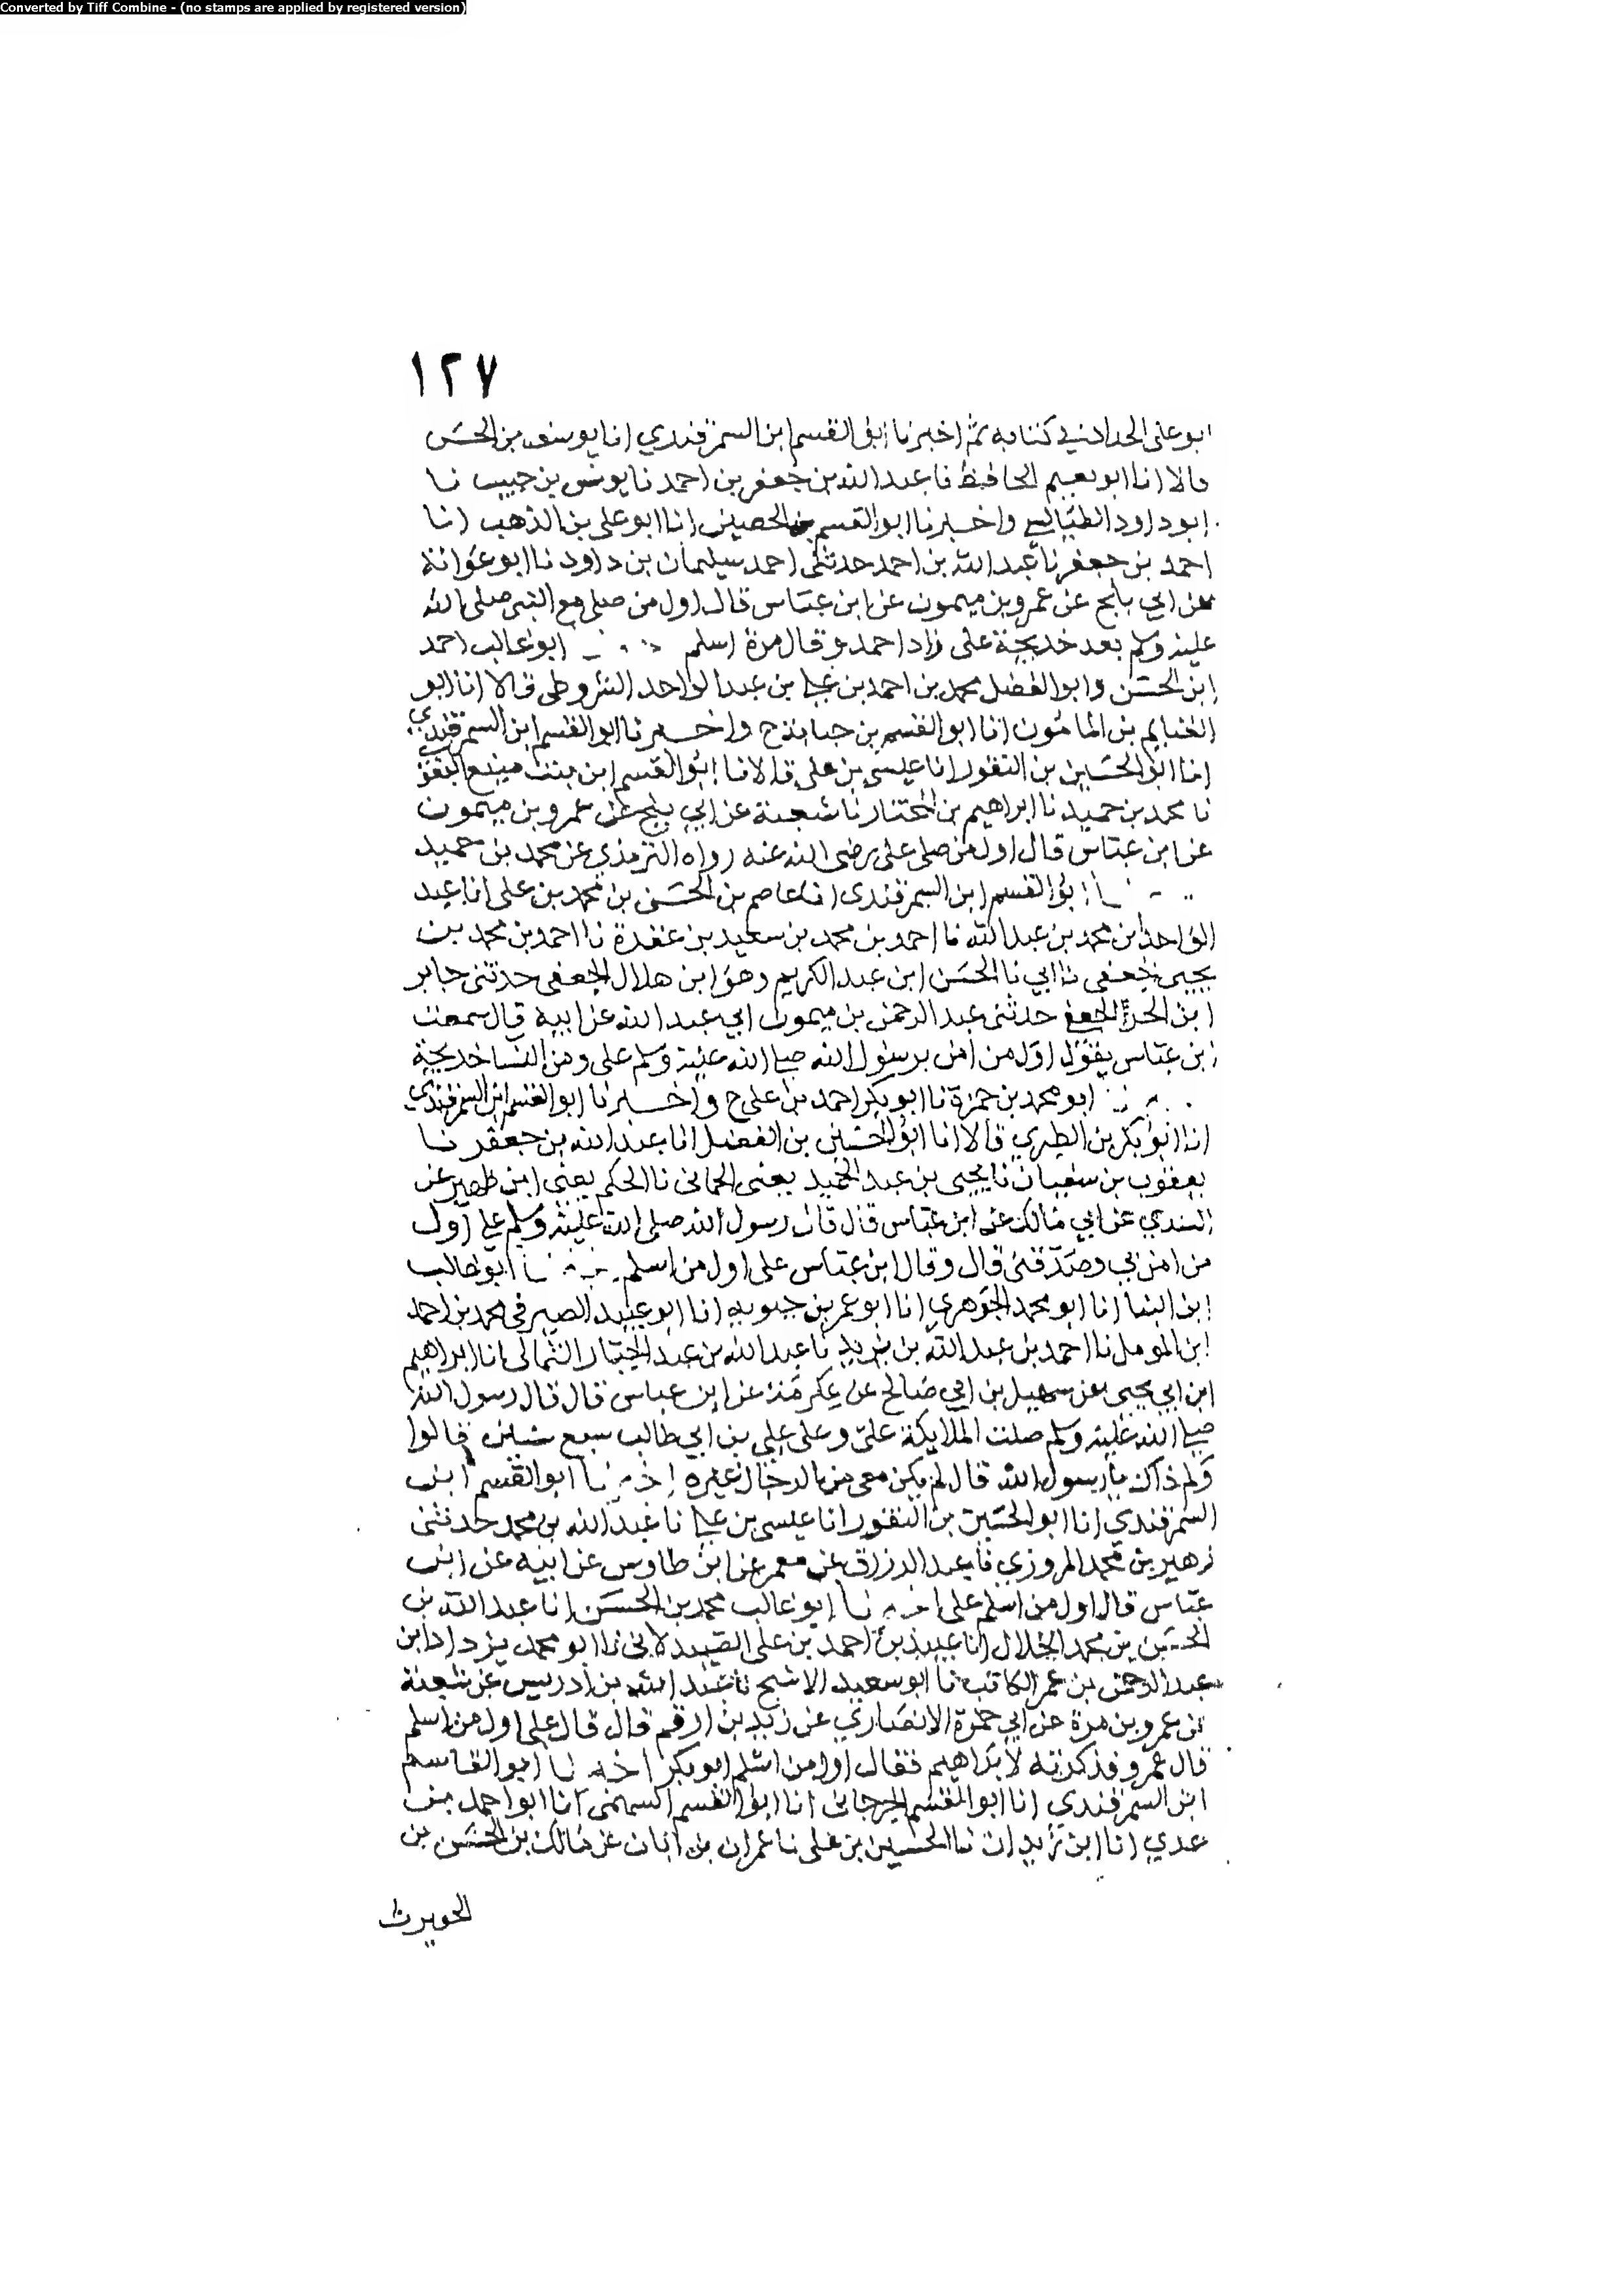 Converted by Tiff Combine - (no stamps are applied by registered version)
١٢٧
ابو على الحداد في كتابه ثم اخبرنا ابو القسم ابن السمرقندي انا يوسف بن الحسن
قالا انا ابو نعيم الحافظ نا عبد الله بن جعفر بن احمد نا يونس بن حبيب نا
ابو داود الطيالسي واخبرنا ابو القسم بن الحصين انا ابو علي بن المذهب انا
احمد بن جعفر نا عبد الله بن احمد حدثني احمد سليمان بن داود نا ابو عوانة
عن ابي بلج عن عمرو بن ميمون عن ابن عباس قال اول من صلى مع النبى صلى الله
عليه وسلم بعد خديجة على زاد احمد وقال مرة اسلم ابو غالب احمد
ابن الحسن وابو الفضل محمد بن احمد بن علي بن عبد الواحد الشروطى قالا انا ابو
الغنايم بن المامون انا ابو القسم بن حبابة ح واخبرنا ابو القسم ابن السمرقندي
انا ابو الحسين بن النقور انا عيسى بن على قالا نا ابو القسم ابن بنت منيع البغوي
نا محمد بن حميد نا ابراهيم بن المختار نا شعبة عن ابي بلج عن عمرو بن ميمون
عن ابن عباس قال اول من صلى على رضى الله عنه رواه الترمذي عن محمد بن حميد
ابو القسم ابن السمرقندى انا عاصم بن الحسن بن محمد بن على انا عبد
الواحد ابن محمد بن عبد الله نا احمد بن محمد بن سعيد بن عقدة نا احمد بن محمد بن
يحيى الجعفى نا ابي نا الحسن ابن عبد الكريم وهو ابن هلال الجعفى حدثنى جابر
ابن الحر الجعفي حدثنى عبد الرحمن بن ميمون ابي عبد الله عن ابيه قال سمعت
ابن عباس يقول اول من امن برسول الله صلى الله عليه وسلم على ومن النسا خديجة
ابو محمد بن حمزة نا ابو بكر احمد بن على ح واخبرنا ابو القسم ابن السمرقندي
انا ابو بكر بن الطبري قالا انا ابو الحسين بن الفضل انا عبد الله بن جعفر نا
يعقوب بن سفيان نا يحيى بن عبد الحميد يعنى الحمانى نا الحكم يعنى ابن ظهير عن
السدي عن ابي مالك عن ابن عباس قال قال رسول الله صلى الله عليه وسلم علي اول
من امن بي وصدقنى قال وقال ابن عباس على اول من اسلم اخبرنا ابو غالب
ابن البنا انا ابو محمد الجوهري انا ابو عمر بن حيويه انا ابو عبيد الصيرفى محمد بن احمد
ابن المومل نا احمد بن عبد الله بن يزيد نا عبد الله بن عبد الجبار الثمالى انا ابراهيم
ابن ابي يحيى عن سهيل بن ابي صالح عن عكرمة عن ابن عباس قال قال رسول الله
صلى الله عليه وسلم صلت الملايكة على وعلى علي بن ابي طالب سبع سنين قالوا
ولم ذاك يا رسول الله قال لم يكن معى من الرجال غيره اخبرنا ابو القسم ابن
السمرقندي انا ابو الحسين بن النقور انا عيسى بن علي نا عبد الله بن محمد حدثنى
زهير بن محمد المروزي نا عبد الرزاق عن معمر عن ابن طاوس عن ابيه عن ابن
عباس قال اول من اسلم على اخبرنا ابو غالب محمد بن الحسن انا عبد الله بن
الحسين بن محمد الخلال انا عبيد بن احمد بن على الصيدلانى نا ابو محمد يزداد ابن
عبد الرحمن بن عمر الكاتب نا ابو سعيد الاشج نا عبد الله بن ادريس عن شعبة
عن عمرو بن مرة عن ابي حمزة الانصاري عن زيد بن ارقم قال قال علي اول من اسلم
قال عمرو فذكرته لابراهيم فقال اول من اسلم ابو بكر اخبرنا ابو القاسم
ابن السمرقندي انا ابو القسم الجرجانى انا ابو القسم السهمى انا ابو احمد بن
عدي انا ابن زيدان نا الحسين بن على نا عمران بن ابان عن مالك بن الحسن بن
الحويرث